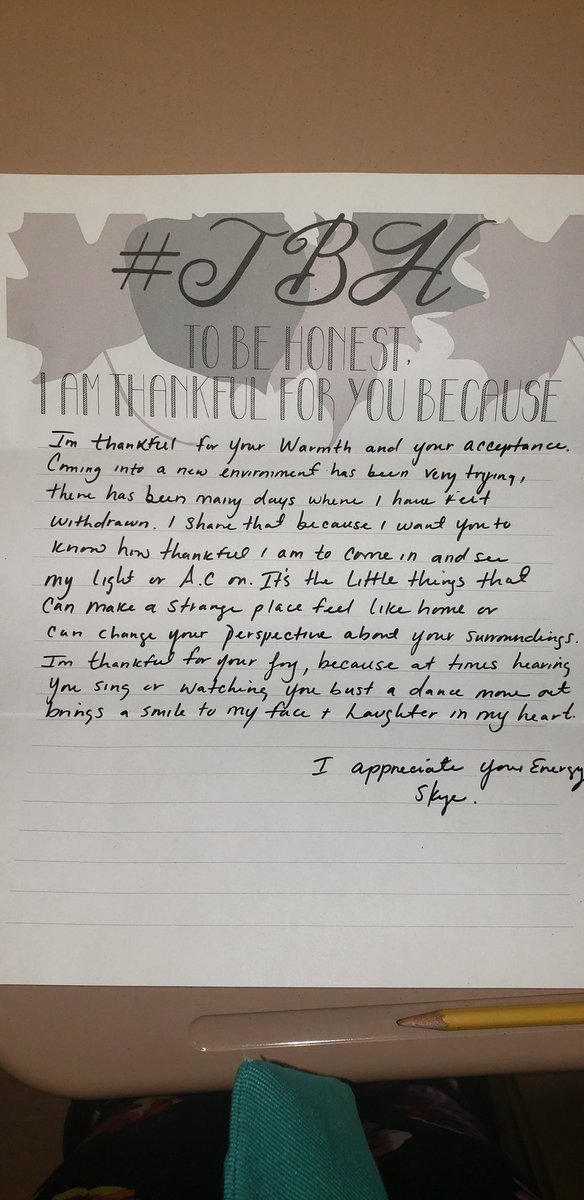 #TBH
TO BE HONEST,
I AM THANKFUL FOR YOU BECAUSE
Im thankful for your Warmth and your acceptance.
Coming into a new envirnment has been very trying,
there has been many days where I have felt
withdrawn. I share that because I want you to
know how thankful I am to come in and see
my light or A.C on. It's the little things that
can make a strange place feel like home or
can change your perspective about your surroundings.
Im thankful for your joy, because at times hearing
you sing or watching you bust a dance move out
brings a smile to my face + laughter in my heart.
I appreciate your Energy
Skye.